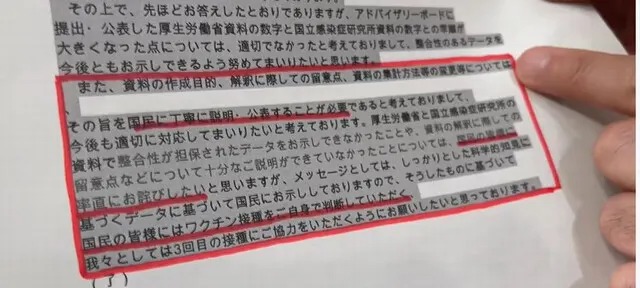 その上で、先ほどお答えしたとおりでありますが、アドバイザリーボードに
提出・公表した厚生労働省資料の数字と国立感染症研究所資料の数字との乖離が
大きくなった点については、適切でなかったと考えておりまして、整合性のあるデータを
今後ともお示しできるよう努めてまいりたいと思います。
また、資料の作成目的、解釈に際しての留意点、資料の集計方法等の変更等については
、
その旨を国民に丁寧に説明・公表することが必要であると考えておりまして、
今後も適切に対応してまいりたいと考えております。厚生労働省と国立感染症研究所の
資料で整合性が担保されたデータをお示しできなかったことや、資料の解釈に際しての
留意点などについて十分なご説明ができていなかったことについては、
率直にお詫びしたいと思いますが、メッセージとしては、しっかりとした科学的知見に
基づくデータに基づいて国民にお示ししておりますので、そうしたものに基づいて
国民の皆様にはワクチン接種をご自身で判断していただく
我々としては3回目の接種にご協力をいただくようにお願いしたいと思っております。
(了)